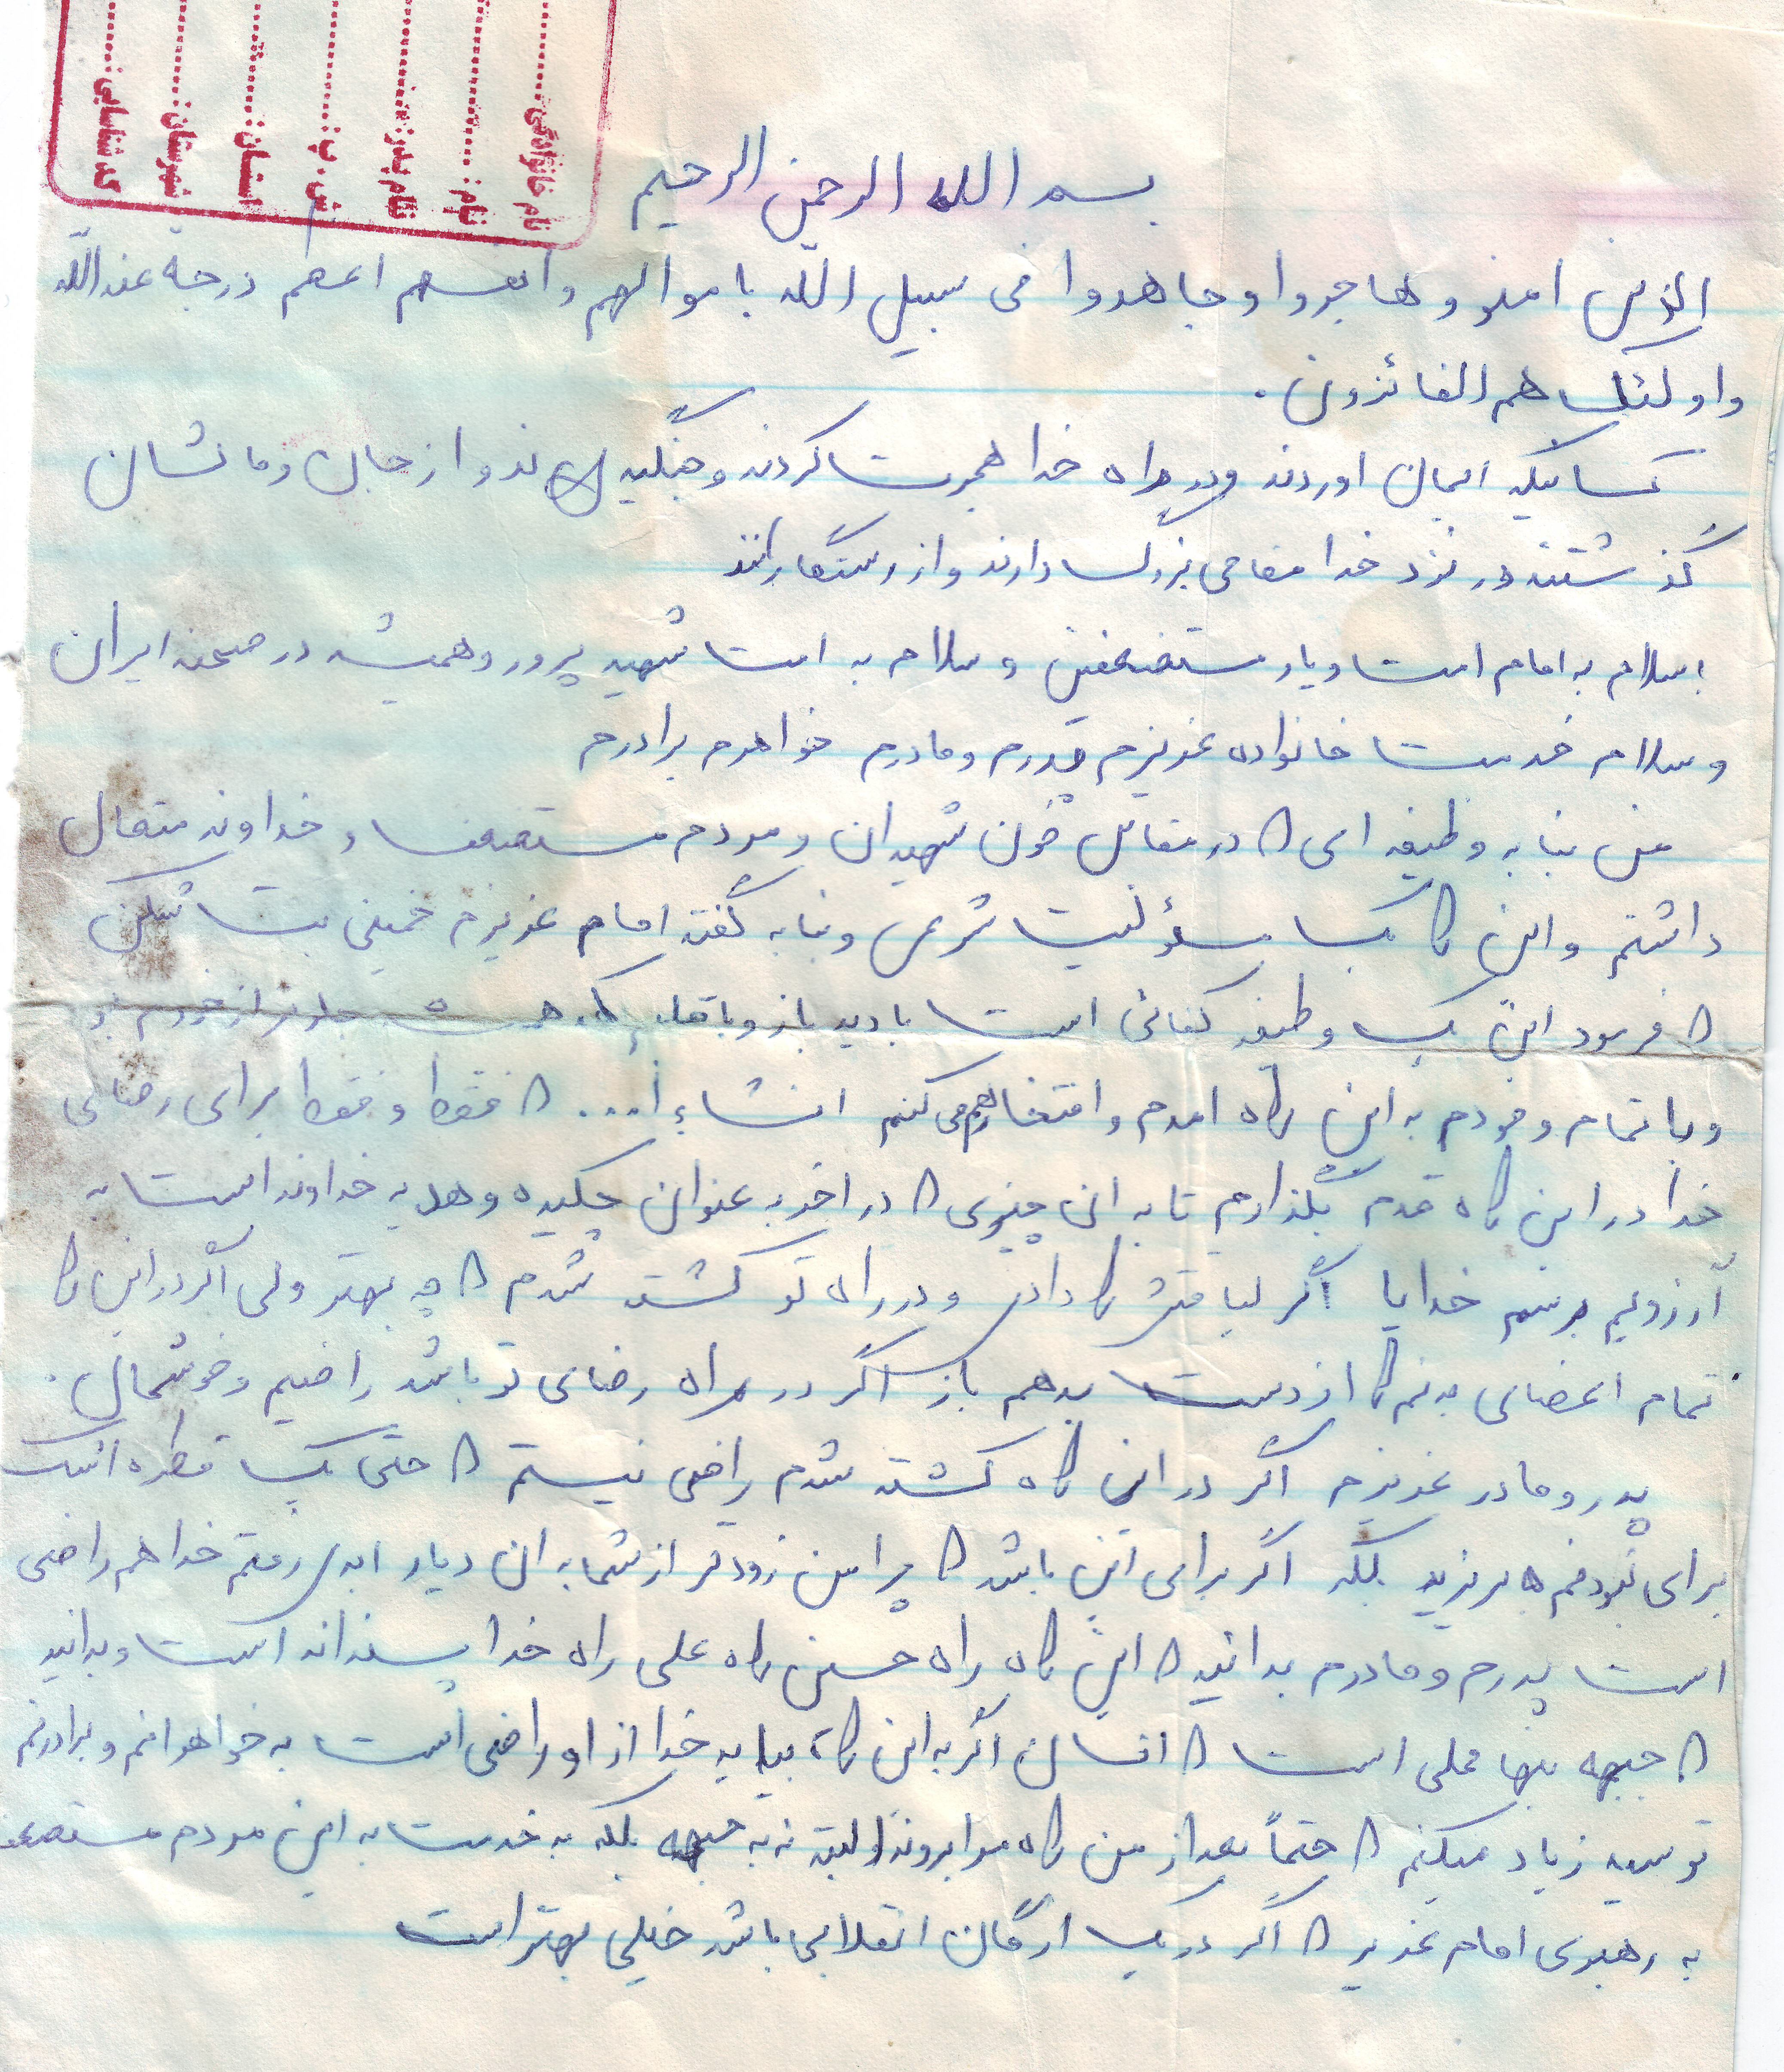 نام خانوادگی:
نام:
نام پدر:
ش. پ:
استان:
شهرستان:
کد شناسایی:
بسم الله الرحمن الرحیم
الذین امنو و هاجروا و جاهدوا فی سبیل الله باموالهم وانفسهم اعظم درجة عندالله
واولئک هم الفائزون.
کسانیکه ایمان اوردند ودر راه خدا هجرت کردند و جنگیدند و از جان ومالشان
گذشتند در نزد خدا مقامی بزرگ دارند و از رستگارانند
سلام به امام امت ویاور مستضعفین و سلام به امت شهید پرور وهمیشه در صحنه ایران
و سلام خدمت خانواده عزیزم پدرم ومادرم خواهرم برادرم
من بنا به وظیفه ای که در مقابل خون شهیدان و مردم مستضعف و خداوند متعال
داشتم و این که یک مسؤلیت شرعی و بنا به گفته امام عزیزم خمینی بت شکن
که فرمود این یک وظیفه کفائی است با دید باز و با
و با تمام وجودم به این راه امدم و افتخار هم می کنم انشاءا... که فقط و فقط برای رضای
خدا در این راه قدم بگذارم تا به ان چیزی که در اخر به عنوان چکیده و هدیه خداوند است به
آرزویم برسم خدایا اگر لیاقتش را دادی و در راه تو کشته شدم که چه بهتر ولی اگر در این راه
تمام اعضای بدنم را از دست بدهم باز اگر در راه رضای تو باشد راضیم وخوشحال.
پدر و مادر عزیزم اگر در این راه کشته شدم راضی نیستم که حتی یک قطره اشک
برای نبودنم بریزید بلکه اگر برای این باشد که چرا من زودتر از شما به ان دیار ابدی رفتم خدا هم راضی
است پدرم و مادرم بدانید که این راه راه حسین راه علی راه خدا پسندانه است و بدانید
که جبهه تنها محلی است که انسان اگر به این راه بیاید خدا از او راضی است به خواهرانم و برادرانم
توصیه زیاد میکنم که حتماً بعد از من راه مرا بروند البته نه به جبهه بلکه به خدمت به این مردم مستضعف
به رهبری امام عزیز که اگر در یک ارگان انقلابی باشد خیلی بهتر است